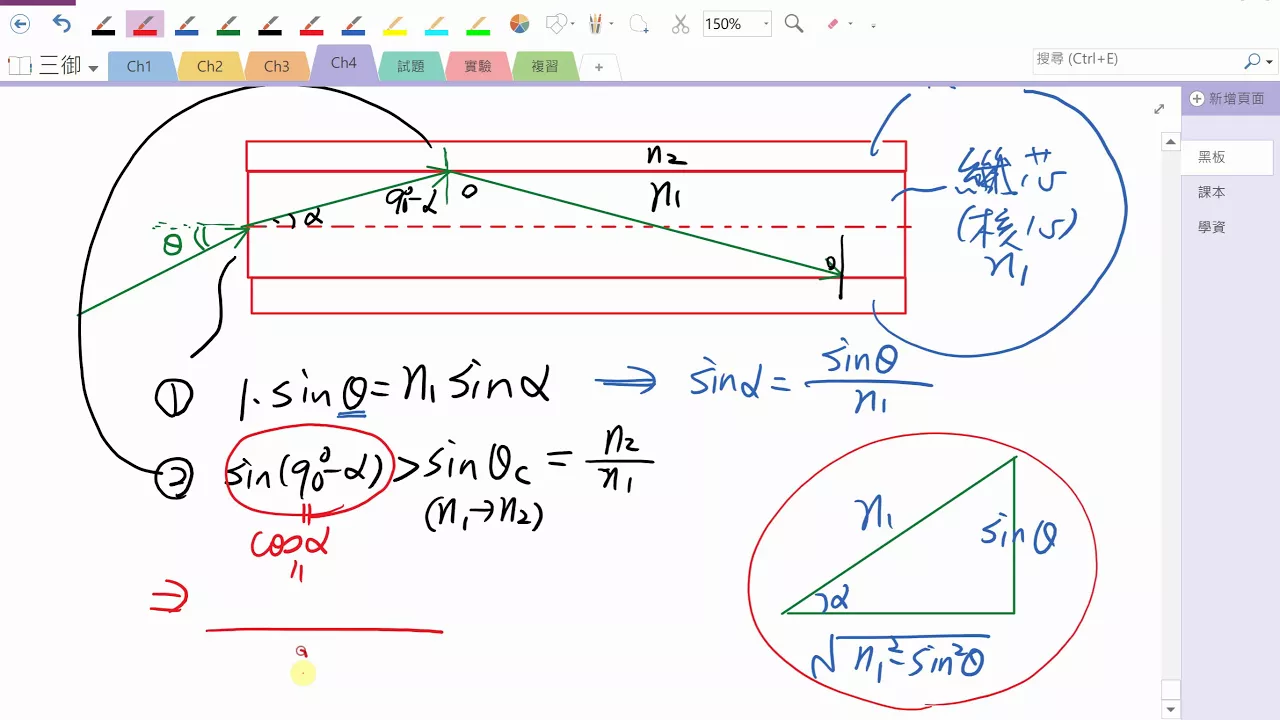 150%
三御
Ch1
Ch2
Ch3
Ch4
試題
實驗
複習
+
搜尋 (Ctrl+E)
新增頁面
黑板
課本
學資
n2
n1
90°-α
α
θ
纖芯
(核心)
n1
① 1·sinθ=n1 sinα ⇒ sinα = sinθ/n1
② sin(90°-α) > sinθc = n2/n1
(n1→n2)
cosα
=
⇒
n1
sinθ
α
√n1²-sin²θ